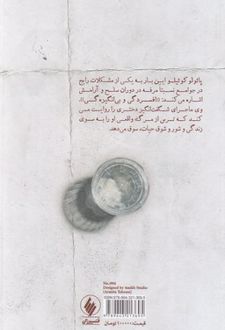 پائولو کوئیلو این بار به یکی از مشکلات رایج
در جوامع نسبتاً مرفه در دوران صلح و آرامش
اشاره می‌کند: «افسردگی و بی‌انگیزه گی»!
وی ماجرای شگفت‌انگیز دختری را روایت می
کند که ترس از مرگ، واقعی او را به سوی
زندگی و شور و شوق حیات، سوق می‌دهد.
Designed by
ISBN
قیمت: تومان